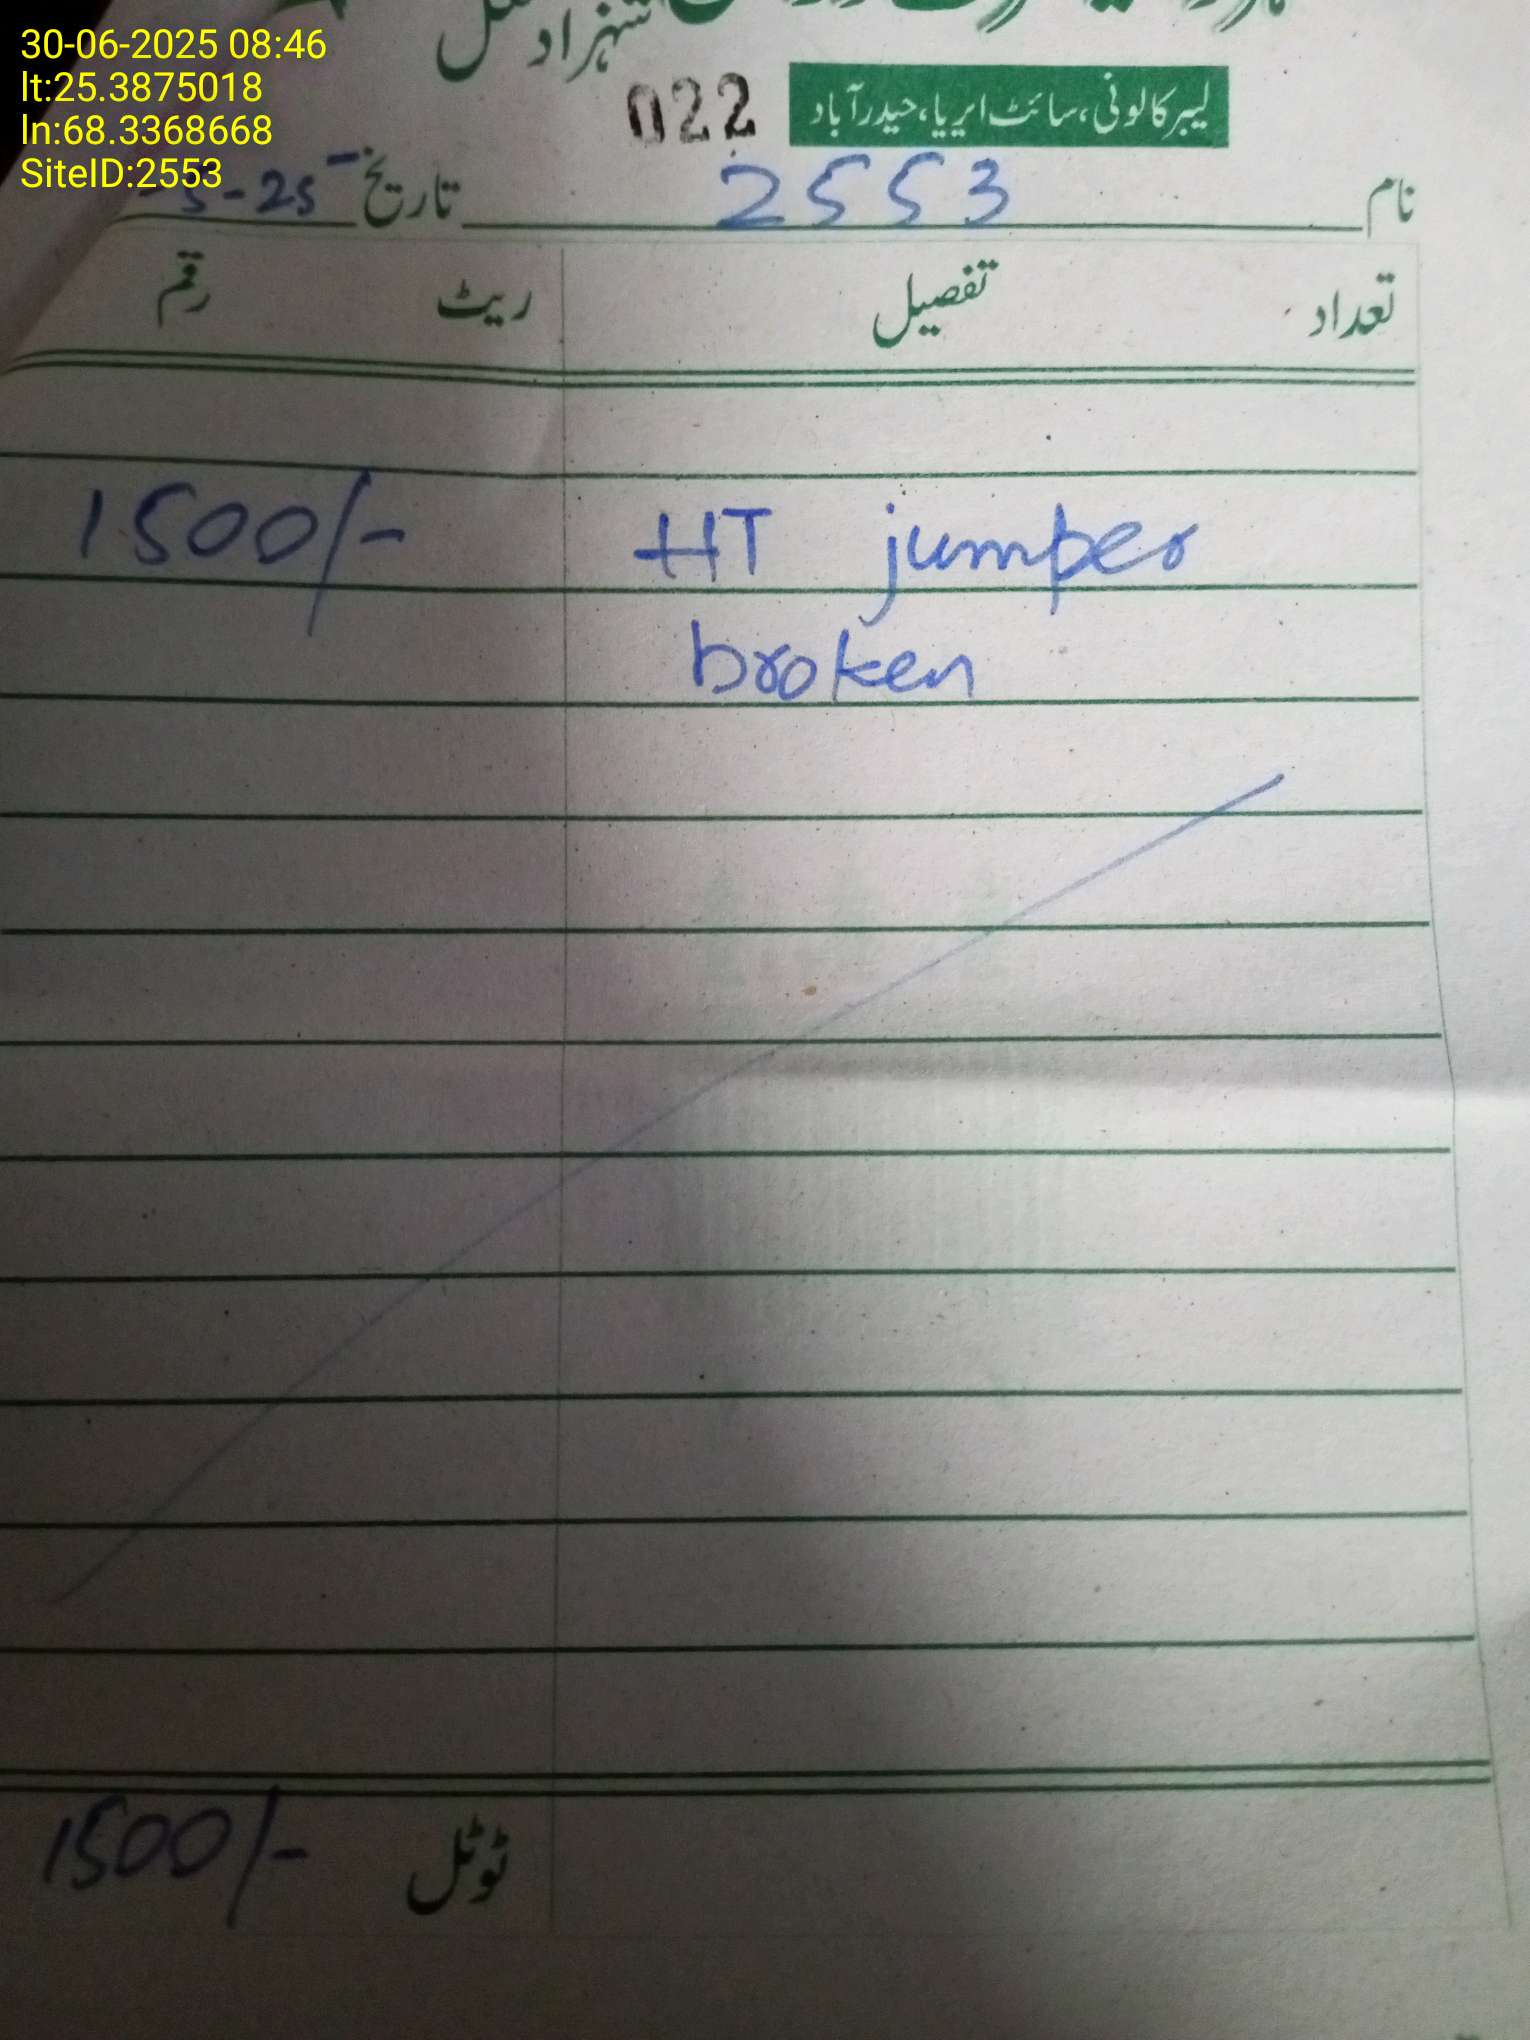 30-06-2025 08:46
lt:25.3875018
ln:68.3368668
SiteID:2553
شہزاد
022 لیبر کالونی، سائٹ ایریا، حیدرآباد
نام 2553 تاریخ 5-25
تعداد تفصیل ریٹ رقم
HT jumper 1500/-
broken
ٹوٹل 1500/-